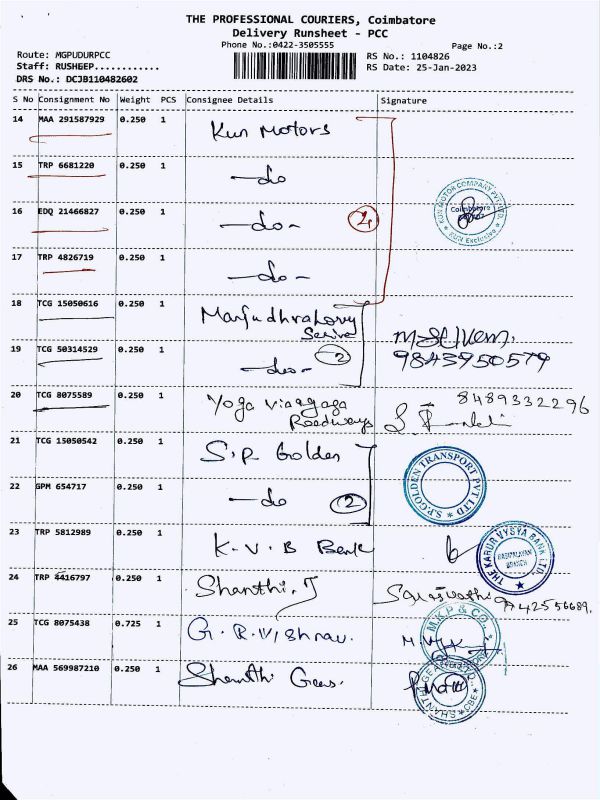 THE PROFESSIONAL COURIERS, Coimbatore
Delivery Runsheet - PCC
Phone No.:0422-3505555
Page No.:2
Route: MGPUDURPCC
RS No.: 1104826
Staff: RUSHEEP............
RS Date: 25-Jan-2023
DRS No.: DCJB110482602
S No Consignment No Weight PCS Consignee Details Signature
14 MAA 291587929 0.250 1 Kun Motors
15 TRP 6681220 0.250 1 -do
KUN MOTOR COMPANY PVT. LTD.
Coimbatore
KUN Exclusive
16 EDQ 21466827 0.250 1 -do-
17 TRP 4826719 0.250 1 -do-
18 TCG 15050616 0.250 1
9843950579
19 TCG 50314529 0.250 1 -do- 2
20 TCG 8075589 0.250 1 Yoga
Roadways
8489332296
21 TCG 15050542 0.250 1 S.P. Golden
S.P.GOLDEN TRANSPORT PVT LTD
22 GPM 654717 0.250 1 -do 2
23 TRP 5812989 0.250 1 K.V.B Bank
THE KARUR VYSYA BANK LTD.
BRANCH
24 TRP 4416797 0.250 1 Shanthi.J
25 TCG 8075438 0.725 1 G.R.Vishnav.
M.K.P & CO.
26 MAA 569987210 0.250 1 Shanthi Gears.
SHANTHI GEARS
CBE